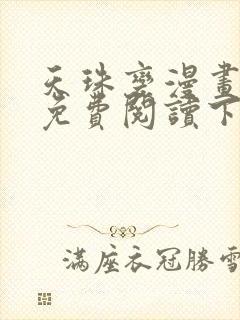 天珠變漫畫
免費閱讀下
滿座衣冠勝雪